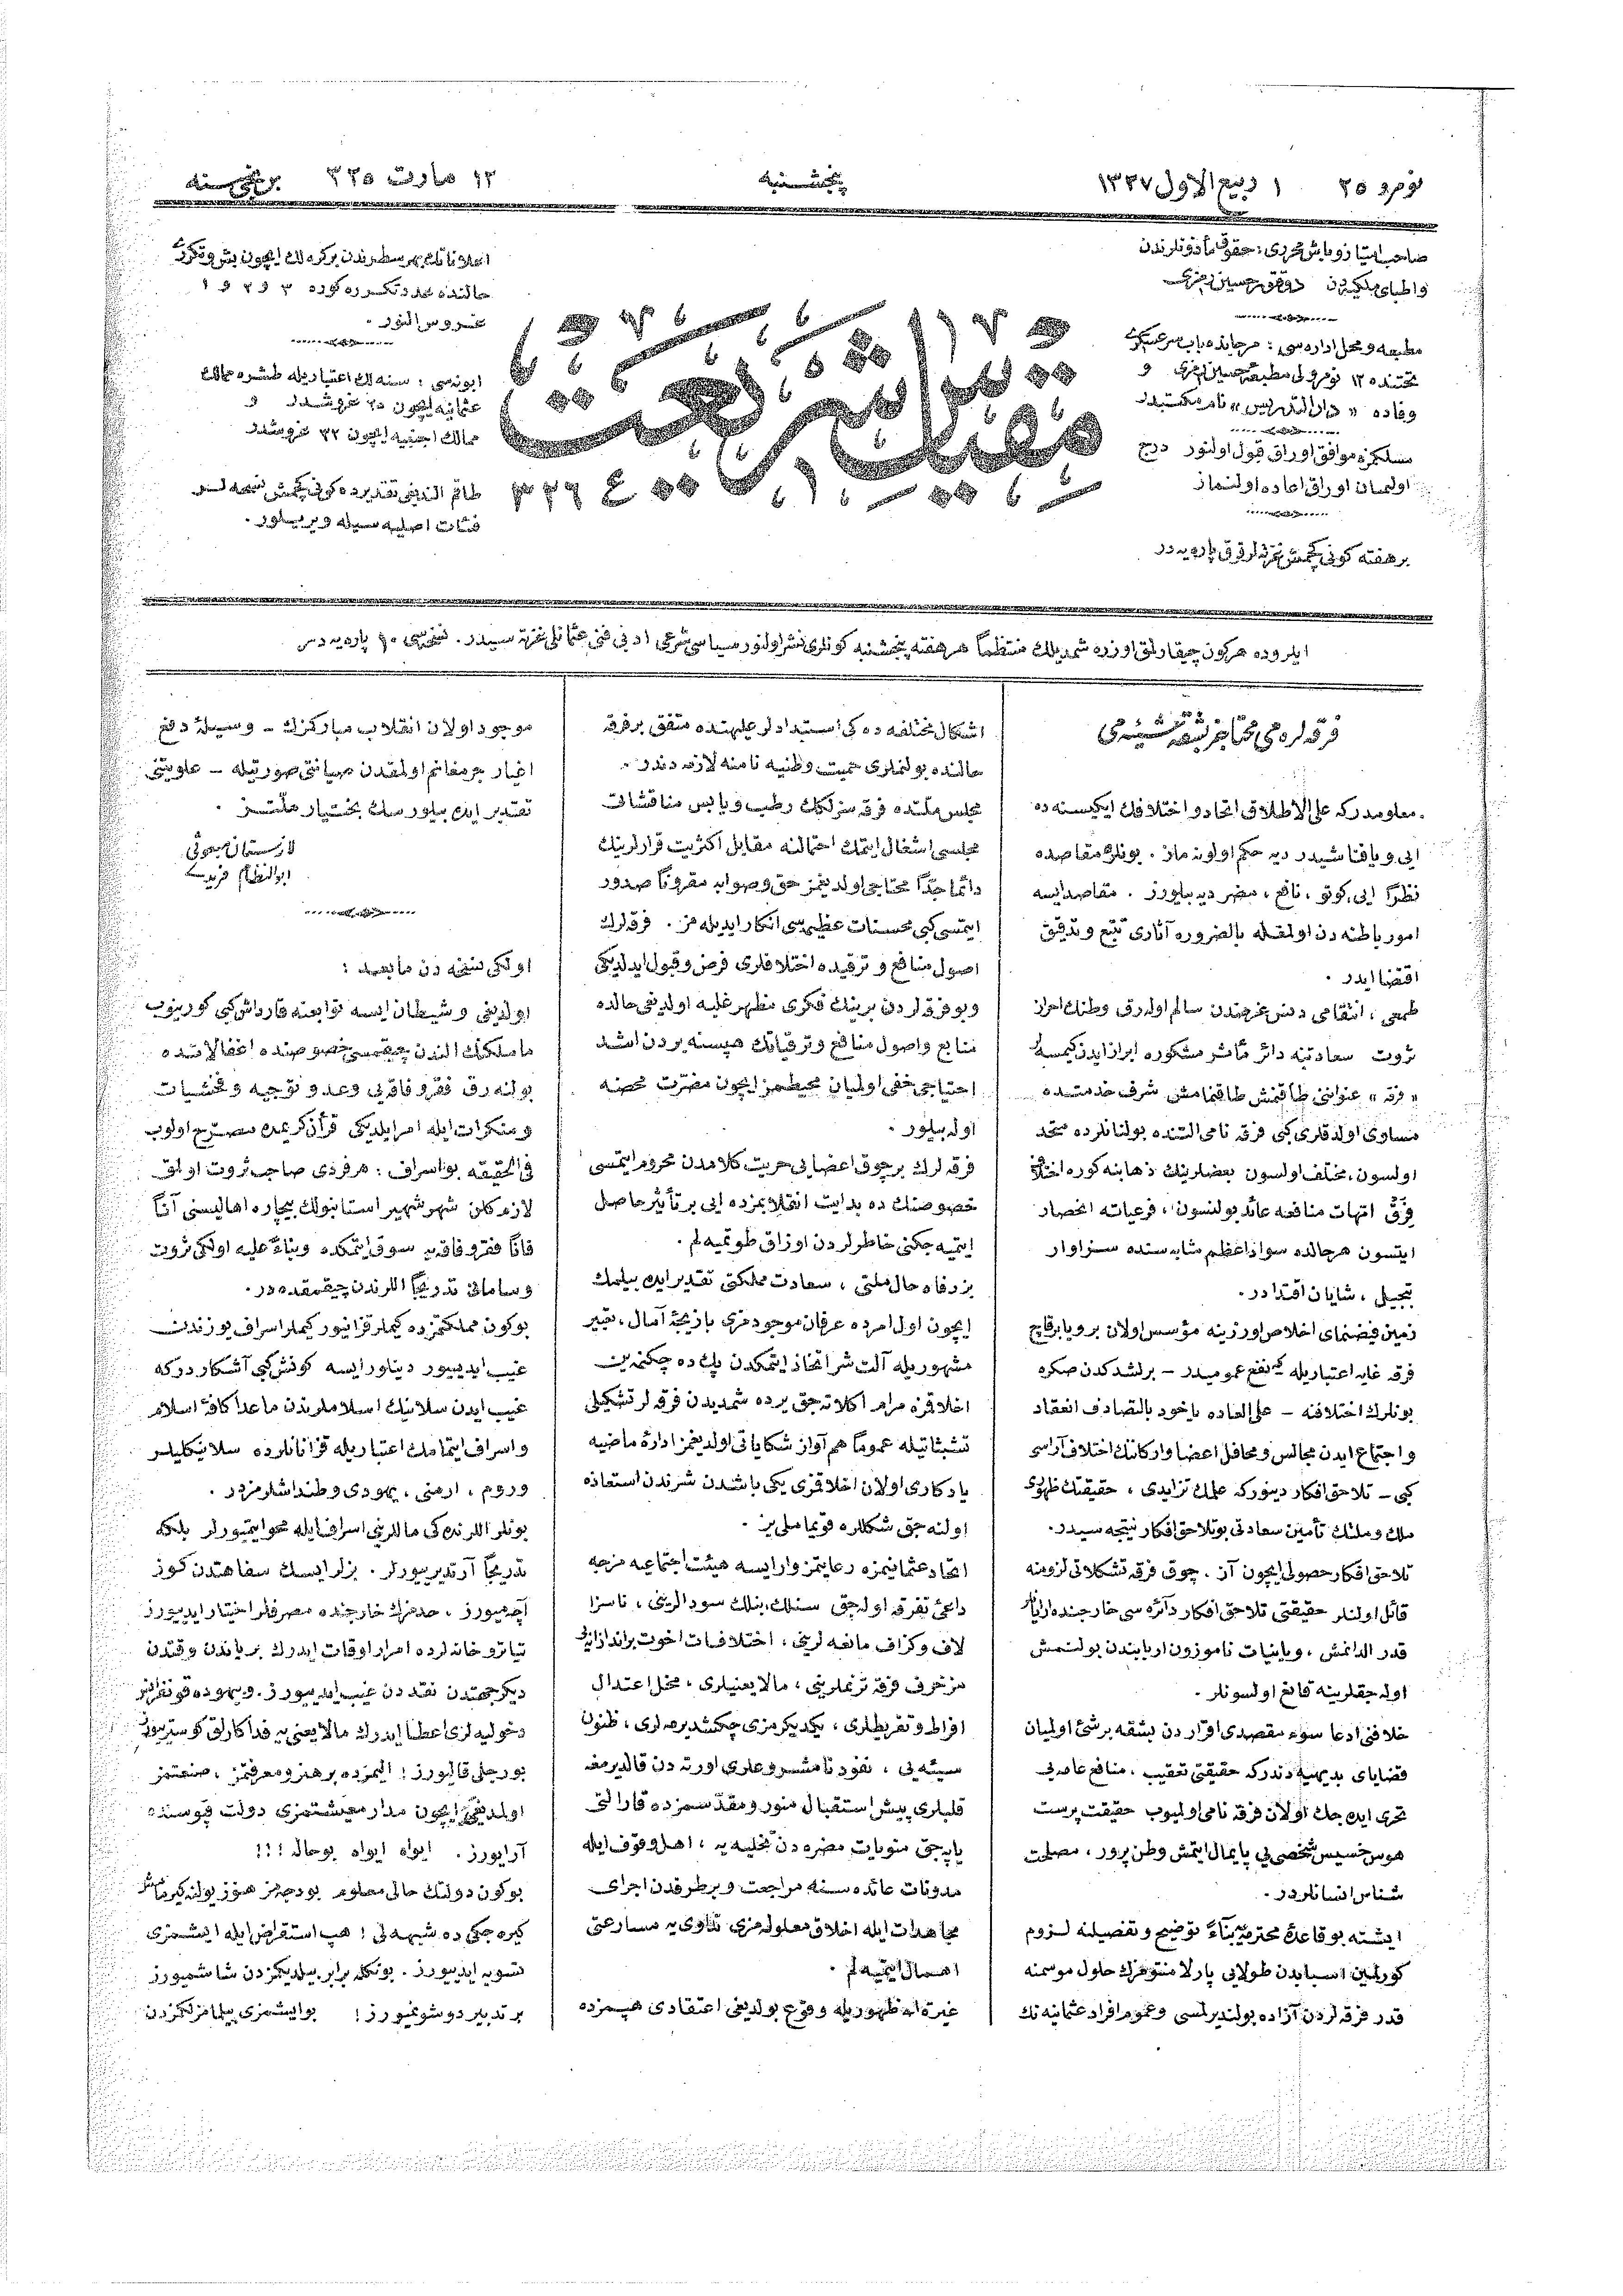 نومرو ٢٥
١ ربيع الاول ١٣٢٧
پنجشنبه
١٢ مارت ٣٢٥
برنجی سنه
صاحب امتياز و باش محرری : حقوق مأذونلرندن
واطبای ملكيه‌دن دوقتور حسين رمزی
مطبعه و محل اداره سی : مرجانده باب سرعسكری
تحتنده ١٢ نومرولی مطبعهٔ حسين رمزی و
وفاده « دار التدريس » نام مكتبدر
مسلكمزه موافق اوراق قبول اولنور درج
اولنميان اوراق اعاده اولنماز
بر هفته كونی كچمش غزته لر قرق پاره يه در
مقياس شريعت
٣٢٦
اعلاناتك بهر سطرندن بر كره لك ايچون بش و تكرری
حالنده عدد تكرره كوره ٣ و ٢ و ١
غروش النور .
ابونه سی : سنه لك اعتباريله طشره ممالك
عثمانيه ايچون ٢٥ غروشدر و
ممالك اجنبيه ايچون ٣٢ غروشدر
طاقم النديغی تقديرده كونی كچمش نسخه لر
فئات اصليه سيله ويريلور .
ايلروده هركون چيقارلمق اوزره شمديلك منتظماً هر هفته پنجشنبه كونلری نشر اولنور سياسی شرعی ادبی فنی عثمانلی غزته سيدر . نسخه سی ١٠ پاره يه در
فرقه لره می محتاجز بشقه شيئه می
معلومدركه علی الاطلاق اتحاد و اختلافك ايكيسنه ده
ايی ويا فنا شيدر ديه حكم اولونه ماز . بونلره مقاصده
نظراً ايی ، كوتو ، نافع ، مضر ديه بيلورز . مقاصد ايسه
امور باطنه دن اولمقله بالضروره آثاری تتبع و تدقيق
اقتضا ايدر .
طمعی ، انتقامی دنس غرضدن سالم اوله رق وطنك احراز
ثروت سعادتنه دائر مآثر مشكوره ابراز ايدن كيمسه لر
« فرقه » عنواننی طاقنمش طاقنمامش شرف خدمتده
مساوی اولدقلری كبی فرقه نامی التنده بولنانلرده متحد
اولسون ، مختلف اولسون بعضلرينك ذهابنه كوره اختلاف
فِرَق امهات منافعه عائد بولنسون ، فرعياته انحصار
ايتسون هر حالده سواد اعظم مثابه سنده سزاوار
تبجيل ، شايان اقتدادر .
زمين فيضنمای اخلاص اوزرينه مؤسس اولان بر ويا برقاچ
فرقه غايه اعتباريله كه نفع عموميدر – برلشدكدن صكره
بونلرك اختلافنه – علی العاده ياخود بالتصادف انعقاد
و اجتماع ايدن مجالس و محافل اعضا و اركاننك اختلاف آراسی
كبی – تلاحق افكار دينوركه علمك تزايدی ، حقيقتك ظهوری
ملك و ملتك تأمين سعادتی بو تلاحق افكار نتيجه سيدر .
تلاحق افكار حصولی ايچون آز ، چوق فرقه تشكلاتی لزومنه
قائل اولنلر حقيقتی تلاحق افكار دائره سی خارجنده آرايانلر
قدر الدانمش ، ويا نيات ناموزون اربابندن بولنمش
اوله جقلرينه قانع اولسونلر .
خلافنی ادعا سوء مقصدی اقراردن بشقه برشئ اولميان
قضايای بديهيه دندركه حقيقتی تعقيب ، منافع عامه يی
تحری ايده جك اولان فرقه نامی اولميوب حقيقت پرست
هوس خسيس شخصی يی پايمال ايتمش وطن پرور ، مصلحت
شناس انسانلردر .
ايشته بو قاعدهٔ محترمه يه بناءً توضيح و تفصيلنه لزوم
كورلمين اسبابدن طولايی پارلامنتومزك حلول موسمنه
قدر فرقه لردن آزاده بولنديرلمسی وعموم افراد عثمانيه نك
اشكال مختلفه ده كی استبدادلر عليهنده متفق بر فرقه
حالنده بولنملری حميت وطنيه نامنه لازمه دندر .
مجلس ملتده فرقه سزلكك رطب و يابس مناقشات
مجلسی اشغال ايتمك احتمالنه مقابل اكثريت قرارلرينك
دائما جدّا محتاجی اولديغمز حق و صوابه مقروناً صدور
ايتمسی كبی محسنات عظيمه سی انكار ايديله مز . فرقه لرك
اصول منافع و ترقيده اختلافلری فرض و قبول ايدلديكی
وبو فرقه لردن برينك فكری مظهر غلبه اولديغی حالده
منابع و اصول منافع و ترقياتك هپسنه بردن اشد
احتياجی خفی اولميان محيطمز ايچون مضرّت محضه
اوله بيلور .
فرقه لرك برچوق اعضايی حريت كلامدن محروم ايتمسی
خصوصنك ده بدايت انقلابمزده ايی بر تأثير حاصل
ايتميه جكنی خاطرلردن اوزاق طوتميه لم .
بز رفاه حال ملتی ، سعادت مملكتی تقدير ايده بيلمك
ايچون اول امرده عرفان موجودمزی بازيچهٔ آمال ، تعبير
مشهوريله آلت شر اتخاذ ايتمكدن پك ده چكنمه ين
اخلاقزه مرام اكلاته جق يرده شمديدن فرقه لر تشكيلی
تشبثاتيله عموماً هم آواز شكاياتی اولديغمز ادارهٔ ماضيه
يادكاری اولان اخلاقزی يكی باشدن شرندن استعاذه
اولنه جق شكللره قويماملی يز .
اتحاد عثمانيمزه رعايتمز وارايسه هيئت اجتماعيه مزجه
داعئ تفرقه اوله جق سنلك ، بنلك سودالرينی ، ناسزا
لاف و كزاف مانعه لرينی ، اختلافات اخوت براندازانه يی
مزخرف فرقه ترنملرينی ، مالايعنيلری ، مخل اعتدال
افراط و تفريطلری ، يكديكرمزی چكشديرمه لری ، ظنون
سيئه يی ، نفوذ نامشروعلری اورته دن قالديرمغه
قلبلری پيش استقبال منور و مقدّسمزده قارالتی
ياپه جق منويات مضره دن تخليه يه ، اهل وقوف ايله
مدونات عائده سنه مراجعت و بر طرفدن اجرای
مجاهدات ايله اخلاق معلوله مزی تداوی يه مسارعتی
اهمال ايتميه لم .
غيرة الله ظهوريله وقوع بولديغی اعتقادی هپمزده
موجود اولان انقلاب مباركزك – وسيلهٔ دفع
اغيار جرمغانم اولمقدن صيانتی صورتيله – علويتنی
تقدير ايده بيلورسك بختيار ملّتز .
لازستان مبعوثی
ابوالنظام فريد
اولكی نسخه دن مابعد :
اولديغی وشيطان ايسه توابعنه قارداش كبی كورينوب
ماملكنك الندن چيقمسی خصوصنده اغفالاتده
بولنه رق فقر و فاقه يی وعد و توجيه و فحشيات
و منكرات ايله امر ايلديكی قرآن كريمده مصرّح اولوب
فی الحقيقه بو اسراف : هر فردی صاحب ثروت اولمق
لازم كلن شهر شهير استانبولك بيچاره اهاليسنی آناً
فاناً فقر و فاقه يه سوق ايتمكده وبناءً عليه اولكی ثروت
وسامانی تدريجاً اللرندن چيقمقده در .
بوكون مملكتمزده كيملر قزانيور كيملر اسراف يوزندن
غيب ايدييور دينلورايسه كونش كبی آشكاردركه
غيب ايدن سلانيك اسلاملرندن ماعدا كافهٔ اسلام
واسراف ايتمامك اعتباريله قزانانلرده سلانيكليلر
وروم ، ارمنی ، يهودی وطنداشلرمزدر .
بونلر اللرنده كی ماللرينی اسراف ايله محو ايتميورلر بلكه
تدريجاً آرتديرييورلر . بزلر ايسك سفاهتدن كوز
آچه ميورز ، حدمزك خارجنده مصرفلر اختيار ايدييورز
تياتروخانه لرده امرار اوقات ايدرك بر ياندن وقتدن
ديكر جهتدن نقددن غيب ايدييورز . وبيهوده قونفرانسلر
دخوليه لری اعطا ايدرك مالايعنی يه فداكارلق كوستريورز
بورجلی قاليورز ! اليمزده بر هنر و معرفتمز ، صنعتمز
اولمديغی ايچون مدار معيشتمزی دولت قپوسنده
آرايورز . ايواه ايواه بو حاله !!!
بوكون دولتك حالی معلوم بودجه مز هنوز يولنه كيرمامش
كيره جكی ده شبهه لی ! هپ استقراض ايله ايشمزی
تسويه ايدييورز . بونكله برابر بيلديكمزدن شاشميورز
بر تدبير دوشونميورز ! بو ايشمزی بيلمامزلكمزدن